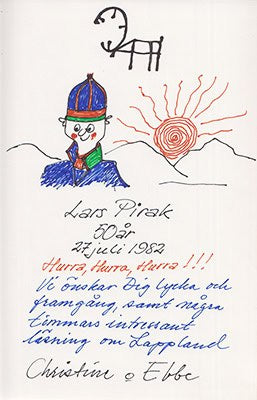 Lars Pirak
50 år
27 juli 1982
Hurra, Hurra, Hurra!!!
Vi önskar Dig lycka och
framgång, samt några
timmars intressant
läsning om Lappland
Christine o Ebbe